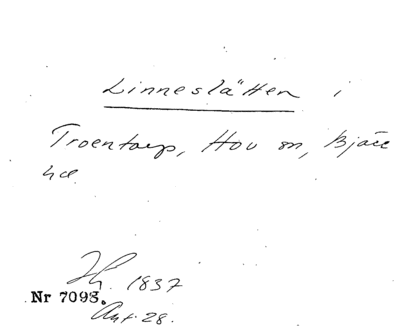 Linneslätten i
Troentorp, Hov sn, Bjäre
hd.
Hy. 1837
Nr 7093.
Ant. 28.